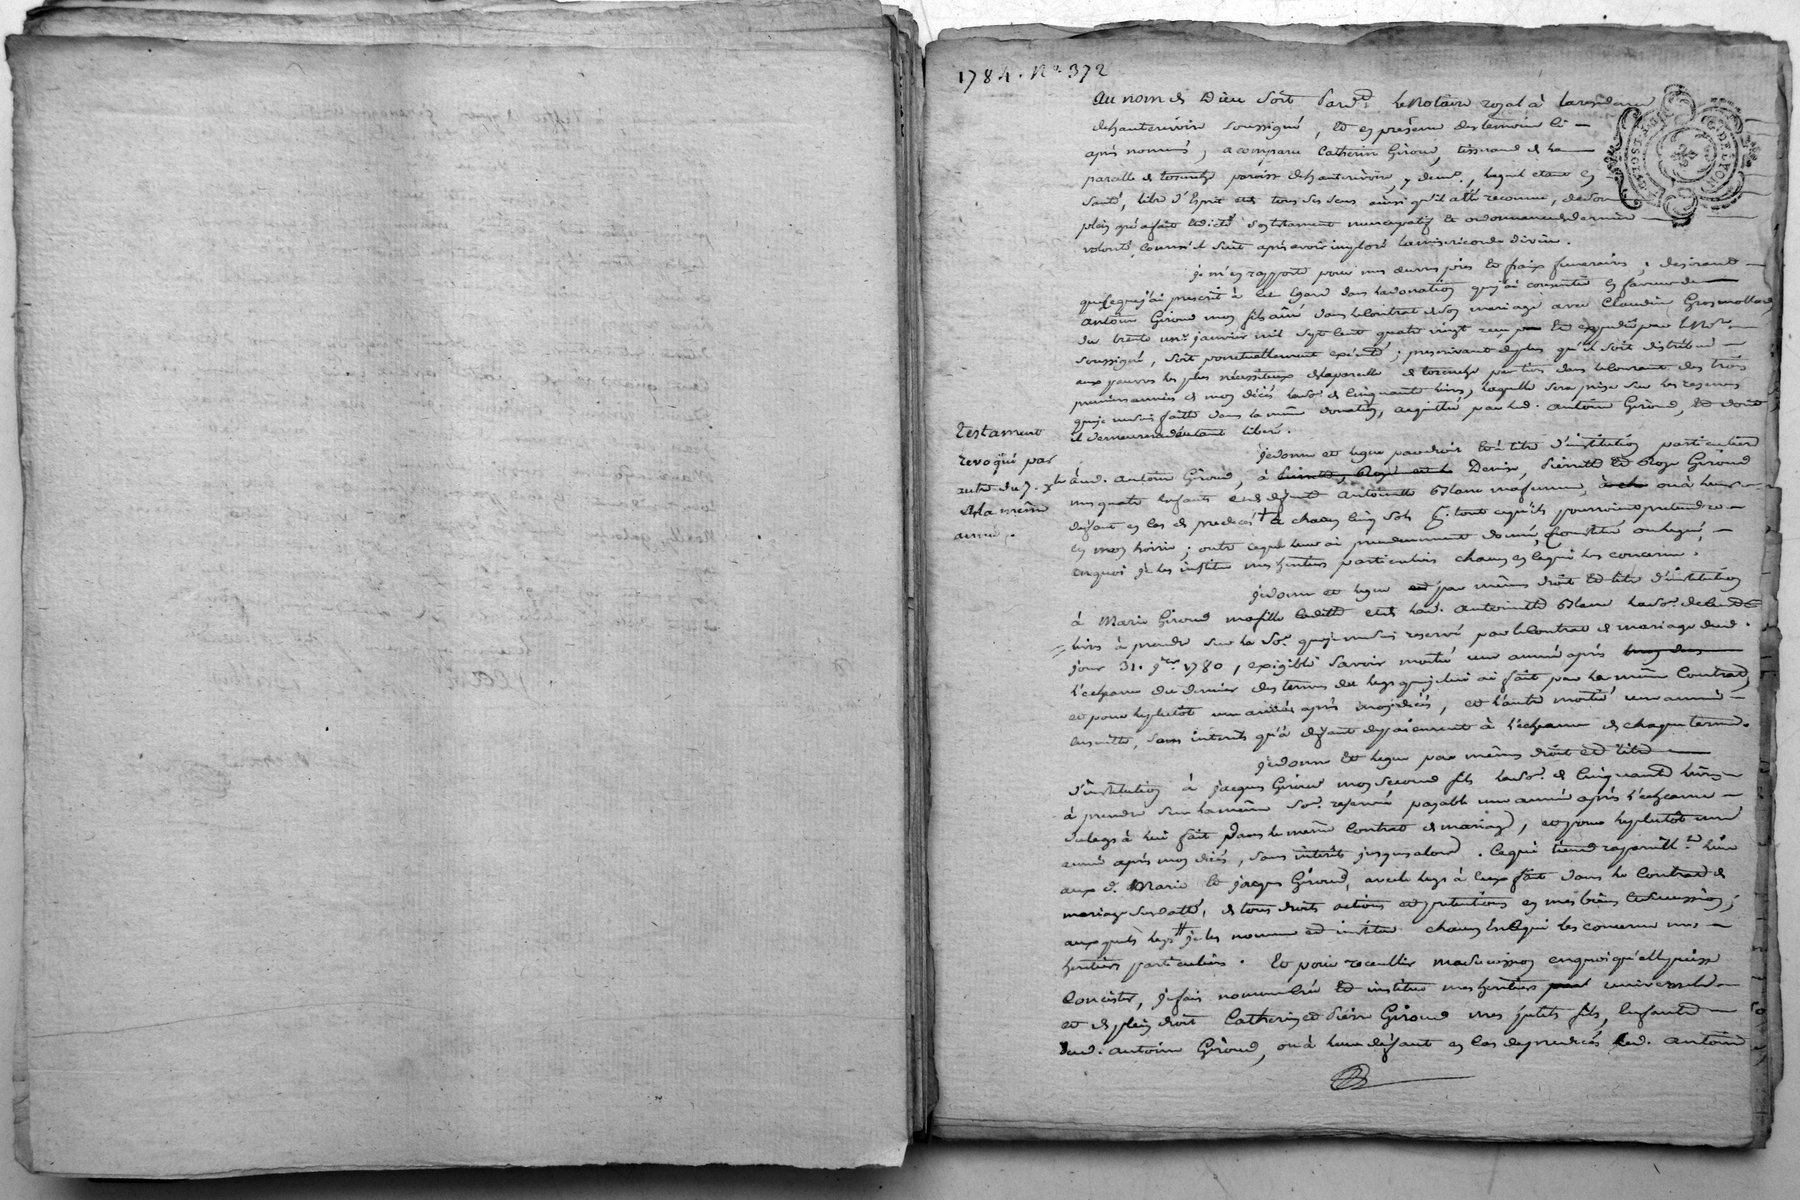 1784. No. 372
Au nom de Dieu soit pard. le Notaire royal à la residence
de hauterivoire soussigné, et en présence des temoins ci
après nommés, a comparu Catherin Giroud, tisserand de la
parcelle de paroisse de hauterivoire, y demt., lequel etant en
santé, libre d'Esprit et de tous ses sens ainsi qu'il a été reconnu, de son
plein gré a fait et dicté son testament nuncupatif et ordonnance de derniere
volonté, comme s'il suit après avoir imploré la misericorde divine.
je m'en rapporte pour mes œuvres pies et fraix funeraires, desirant
que ce que j'ai prescrit à cet egard dans la donation que j'ai consentie en faveur de
antoine Giroud mon fils ainé dans le Contrat de son mariage avec Claudine Grosmollard,
du trente un janvier mil sept cent quatre vingt reçu et expedié par le Nre.
soussigné, soit ponctuellement executé; prescrivant de plus qu'il soit distribué
aux pauvres les plus nécessiteux de la parcelle de par tiers dans le courant des trois
premieres années de mon décès la so. de Cinquante livres, laquelle sera prise sur les reserves
que je me suis faitte dans la même donation, acquittée par led. antoine Giroud, et dont
il demeurera d'autant liberé.
Testament
revoqué par
autre du 7. xbre
de la même
année.
je donne et legue par droit et à titre d'institution particuliere
aud. antoine Giroud, à Denise, Pierrette et Roze Giroud
mes quatre enfants et de defunte antoinette Blanc ma femme, ou à leur
defaut en cas de predecès † à chacun Cinq sols tout ce qu'ils pourroient pretendre
en mon hoirie; outre ce que leur ai precedemment donné, Constitué ou legué,
en quoi je les institue mes heritiers particuliers chacun en ce qui les concerne.
je donne et legue par mêmes droit et titre d'institution
à Marie Giroud ma fille et de lad. antoinette Blanc la so. de Cent
livres à prendre sur la so. que je me suis reservé par le Contrat de mariage dud.
jour 31. jer. 1780, exigible savoir moitié une année après
l'echeance du dernier des termes du legs que je lui ai fait par le même Contrat,
et pour le plutôt une année après mon décès, et l'autre moitié une année
ensuitte, sans interêts qu'à defaut de paiement à l'echeance de chaque terme.
je donne et legue par mêmes droit et titre
d'institution à jacques Giroud mon second fils la so. de Cinquante livres
à prendre sur la même so. reservée payable une année après l'echeance
du legs à lui fait dans le même Contrat de mariage, et pour le plutôt une
année après mon décès, sans interêts jusqu'alors. Ce qui tiendra lieu
aux d. Marie et jacques Giroud, avec le legs à eux fait dans le Contrat de
mariage susdatté, de tous droits actions et pretentions en mes biens et succession;
auxquels legs je les nomme et institue chacun en ce qui les concerne mes
heritiers particuliers. Et pour recueillir ma succession en quoi qu'elle puisse
Consister, je fais nomme crée et institue mes heritiers universels
et de plein droit Catherin et Pierre Giroud mes petits fils, enfants
dud. antoine Giroud, ou à leur defaut en cas de predecès led. antoine